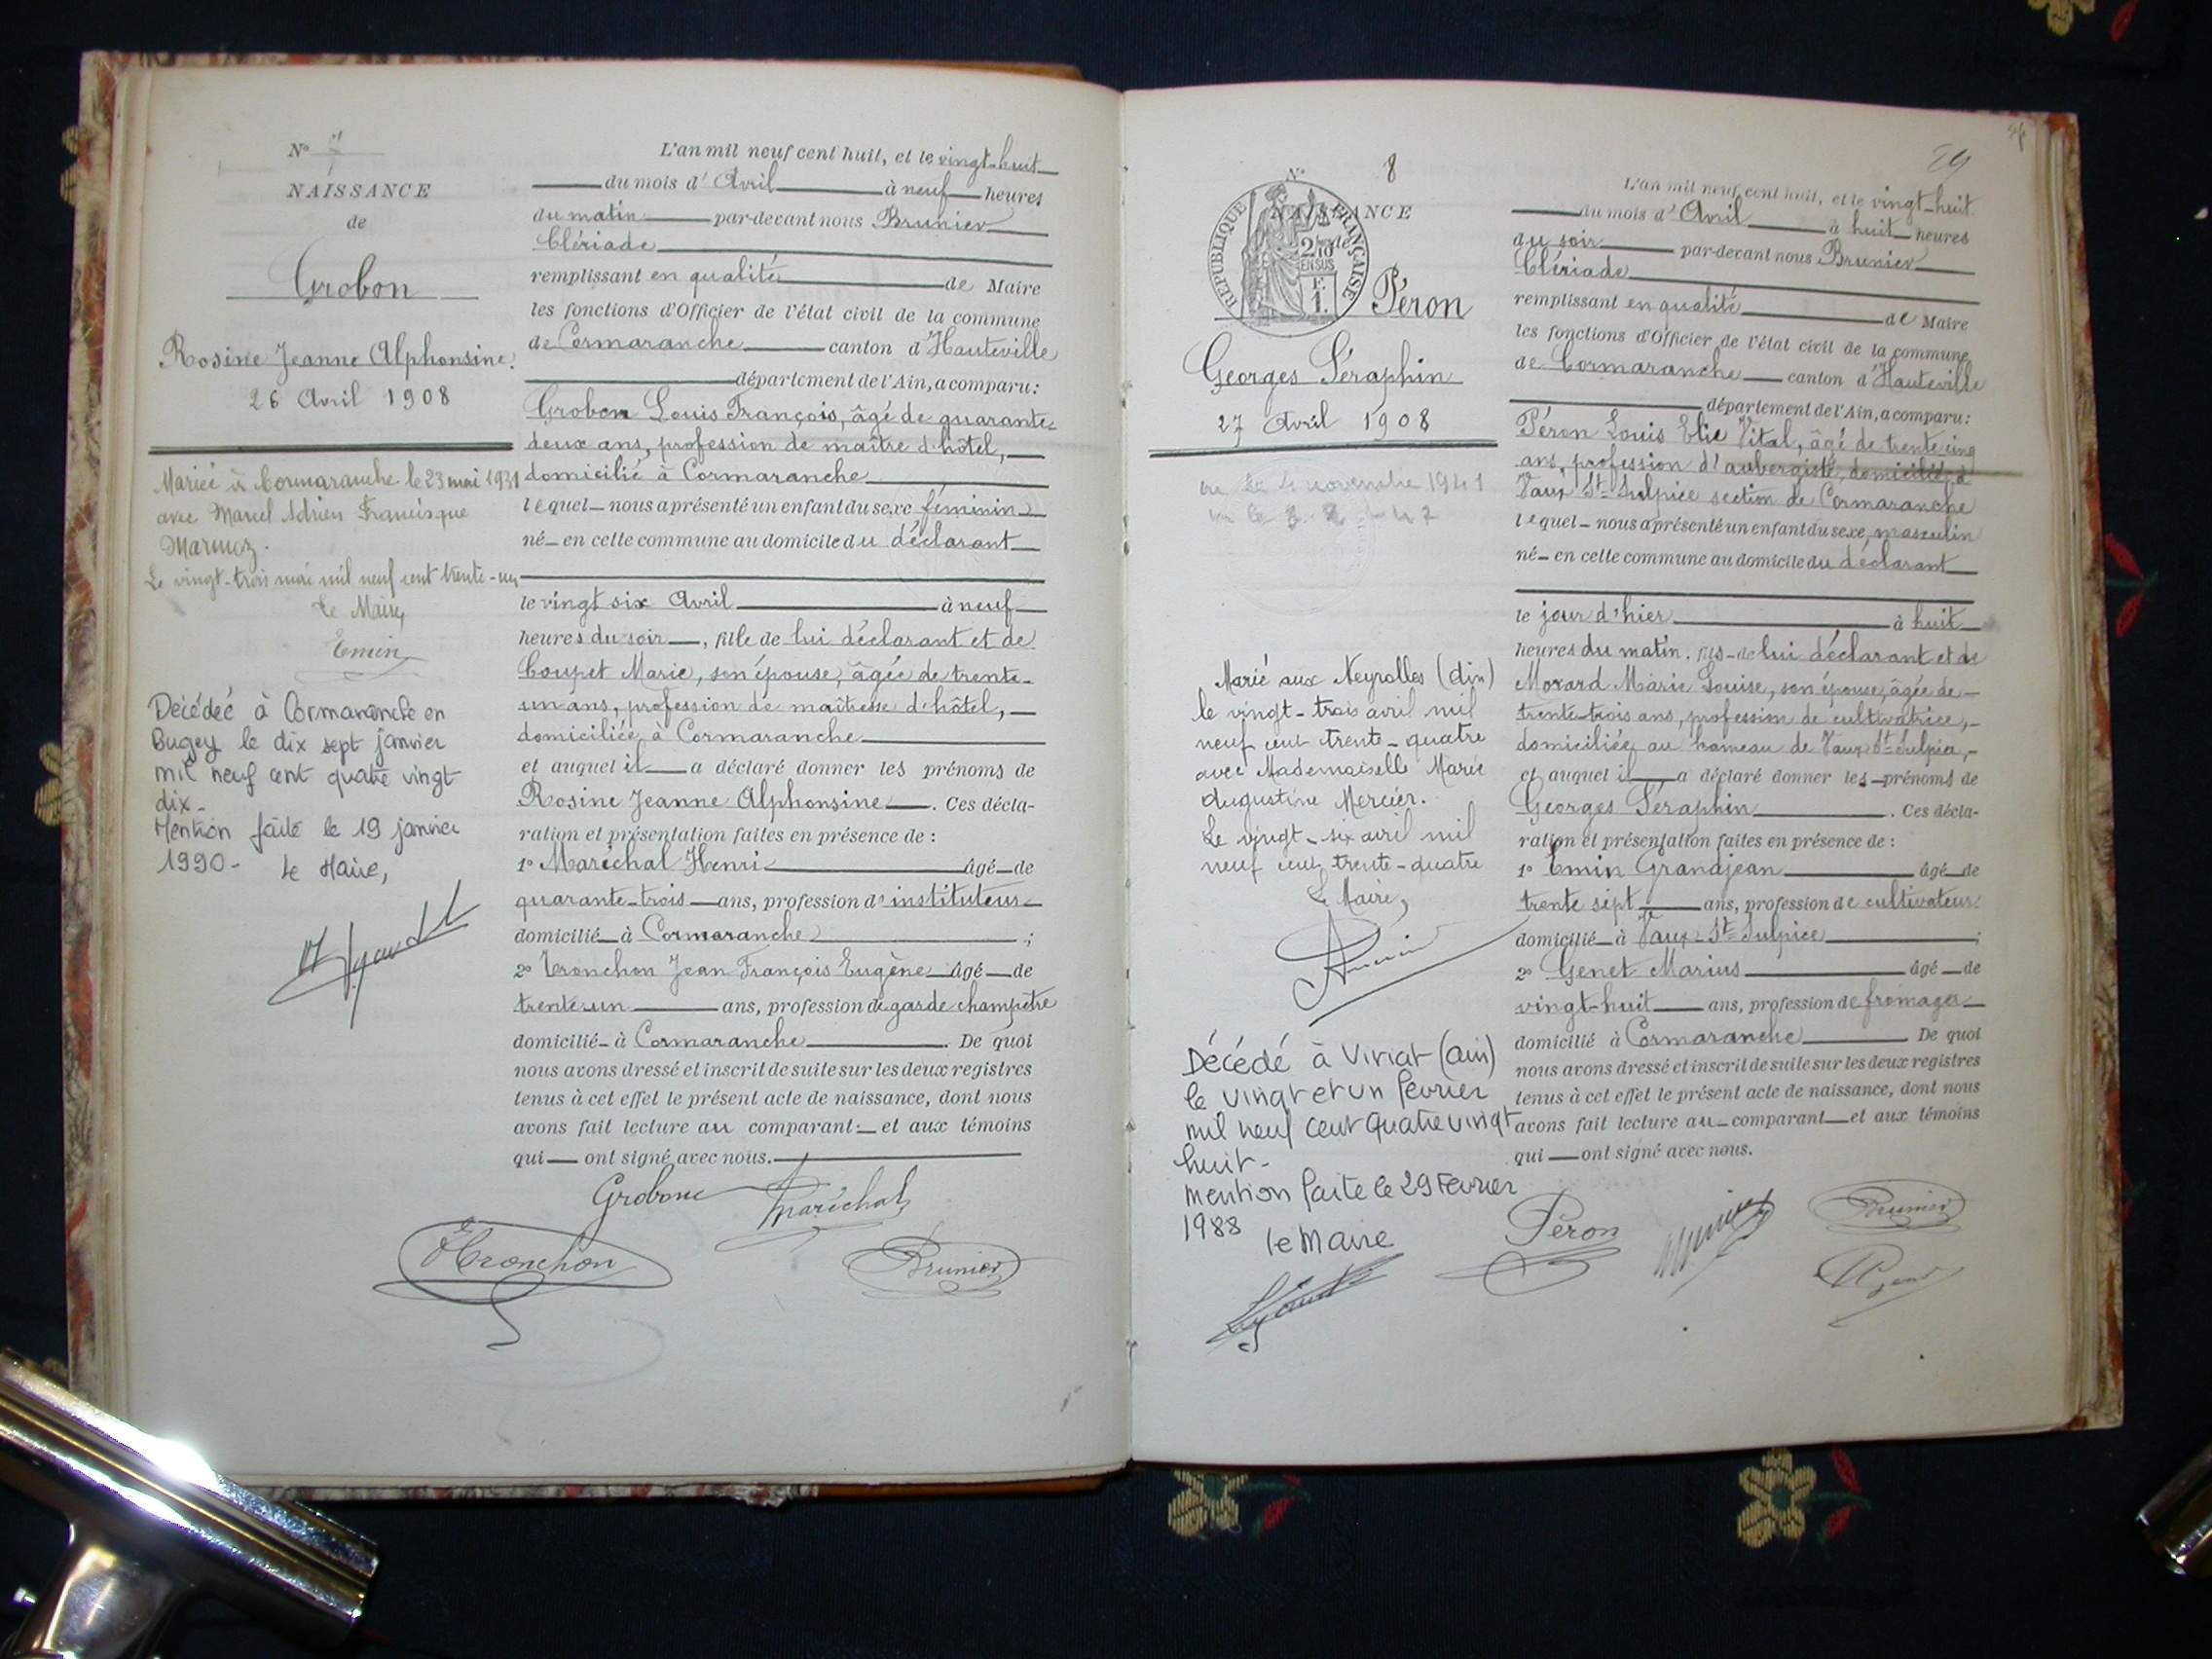 N° 7
NAISSANCE
de
Grobon
Rosine Jeanne Alphonsine.
26 Avril 1908
Mariée à Cormaranche le 23 mai 1931
avec Marcel Adrien Francisque
Le vingt-trois mai mil neuf cent trente-un
Le Maire,
Emin
Décédée à Cormaranche en
Bugey le dix sept janvier
mil neuf cent quatre vingt
dix-
Mention faite le 19 janvier
1990- Le Maire,
L'an mil neuf cent huit, et le vingt-huit
du mois d'Avril à neuf heures
du matin par-devant nous Brunier
Clériade
remplissant en qualité de Maire
les fonctions d'Officier de l'état civil de la commune
de Cormaranche canton d'Hauteville
département de l'Ain, a comparu:
Grobon Louis François, âgé de quarante-
deux ans, profession de maître d'hôtel,
domicilié à Cormaranche
lequel nous a présenté un enfant du sexe féminin
né en cette commune au domicile du déclarant
le vingt six Avril à neuf
heures du soir, fille de lui déclarant et de
Coupet Marie, son épouse, âgée de trente-
un ans, profession de maîtresse d'hôtel,
domiciliée à Cormaranche
et auquel il a déclaré donner les prénoms de
Rosine Jeanne Alphonsine. Ces décla-
ration et présentation faites en présence de :
1° Maréchal Henri âgé de
quarante-trois ans, profession d'instituteur
domicilié à Cormaranche ;
2° Tronchon Jean François Eugène âgé de
trente-un ans, profession de garde champêtre
domicilié à Cormaranche. De quoi
nous avons dressé et inscrit de suite sur les deux registres
tenus à cet effet le présent acte de naissance, dont nous
avons fait lecture au comparant et aux témoins
qui ont signé avec nous.
Grobon Maréchal
Tronchon Brunier
29
N° 8
NAISSANCE
de
REPUBLIQUE FRANÇAISE
2/10
EN SUS
F.
1.
Péron
Georges Séraphin
27 Avril 1908
vu le 4 novembre 1941
Marié aux Neyrolles (Ain)
le vingt-trois avril mil
neuf cent trente-quatre
avec Mademoiselle Marie
Augustine Mercier.
Le vingt-six avril mil
neuf cent trente-quatre
Le Maire,
Décédé à Viriat (Ain)
le vingt et un février
mil neuf cent quatre vingt
huit-
mention faite le 29 Février
1988 le Maire
L'an mil neuf cent huit, et le vingt-huit
du mois d'Avril à huit heures
du soir par-devant nous Brunier
Clériade
remplissant en qualité de Maire
les fonctions d'Officier de l'état civil de la commune
de Cormaranche canton d'Hauteville
département de l'Ain, a comparu:
Péron Louis Elie Vital, âgé de trente cinq
ans, profession d'aubergiste, domicilié à
Vaux St-Sulpice section de Cormaranche
lequel nous a présenté un enfant du sexe masculin
né en cette commune au domicile du déclarant
le jour d'hier à huit
heures du matin, fils de lui déclarant et de
Morard Marie Louise, son épouse, âgée de
trente-trois ans, profession de cultivatrice,
domiciliée au hameau de Vaux St-Sulpice,
et auquel il a déclaré donner les prénoms de
Georges Séraphin. Ces décla-
ration et présentation faites en présence de :
1° Emin Grandjean âgé de
trente sept ans, profession de cultivateur
domicilié à Vaux-St-Sulpice ;
2° Genet Marius âgé de
vingt-huit ans, profession de fromager
domicilié à Cormaranche De quoi
nous avons dressé et inscrit de suite sur les deux registres
tenus à cet effet le présent acte de naissance, dont nous
avons fait lecture au comparant et aux témoins
qui ont signé avec nous.
Péron Brunier